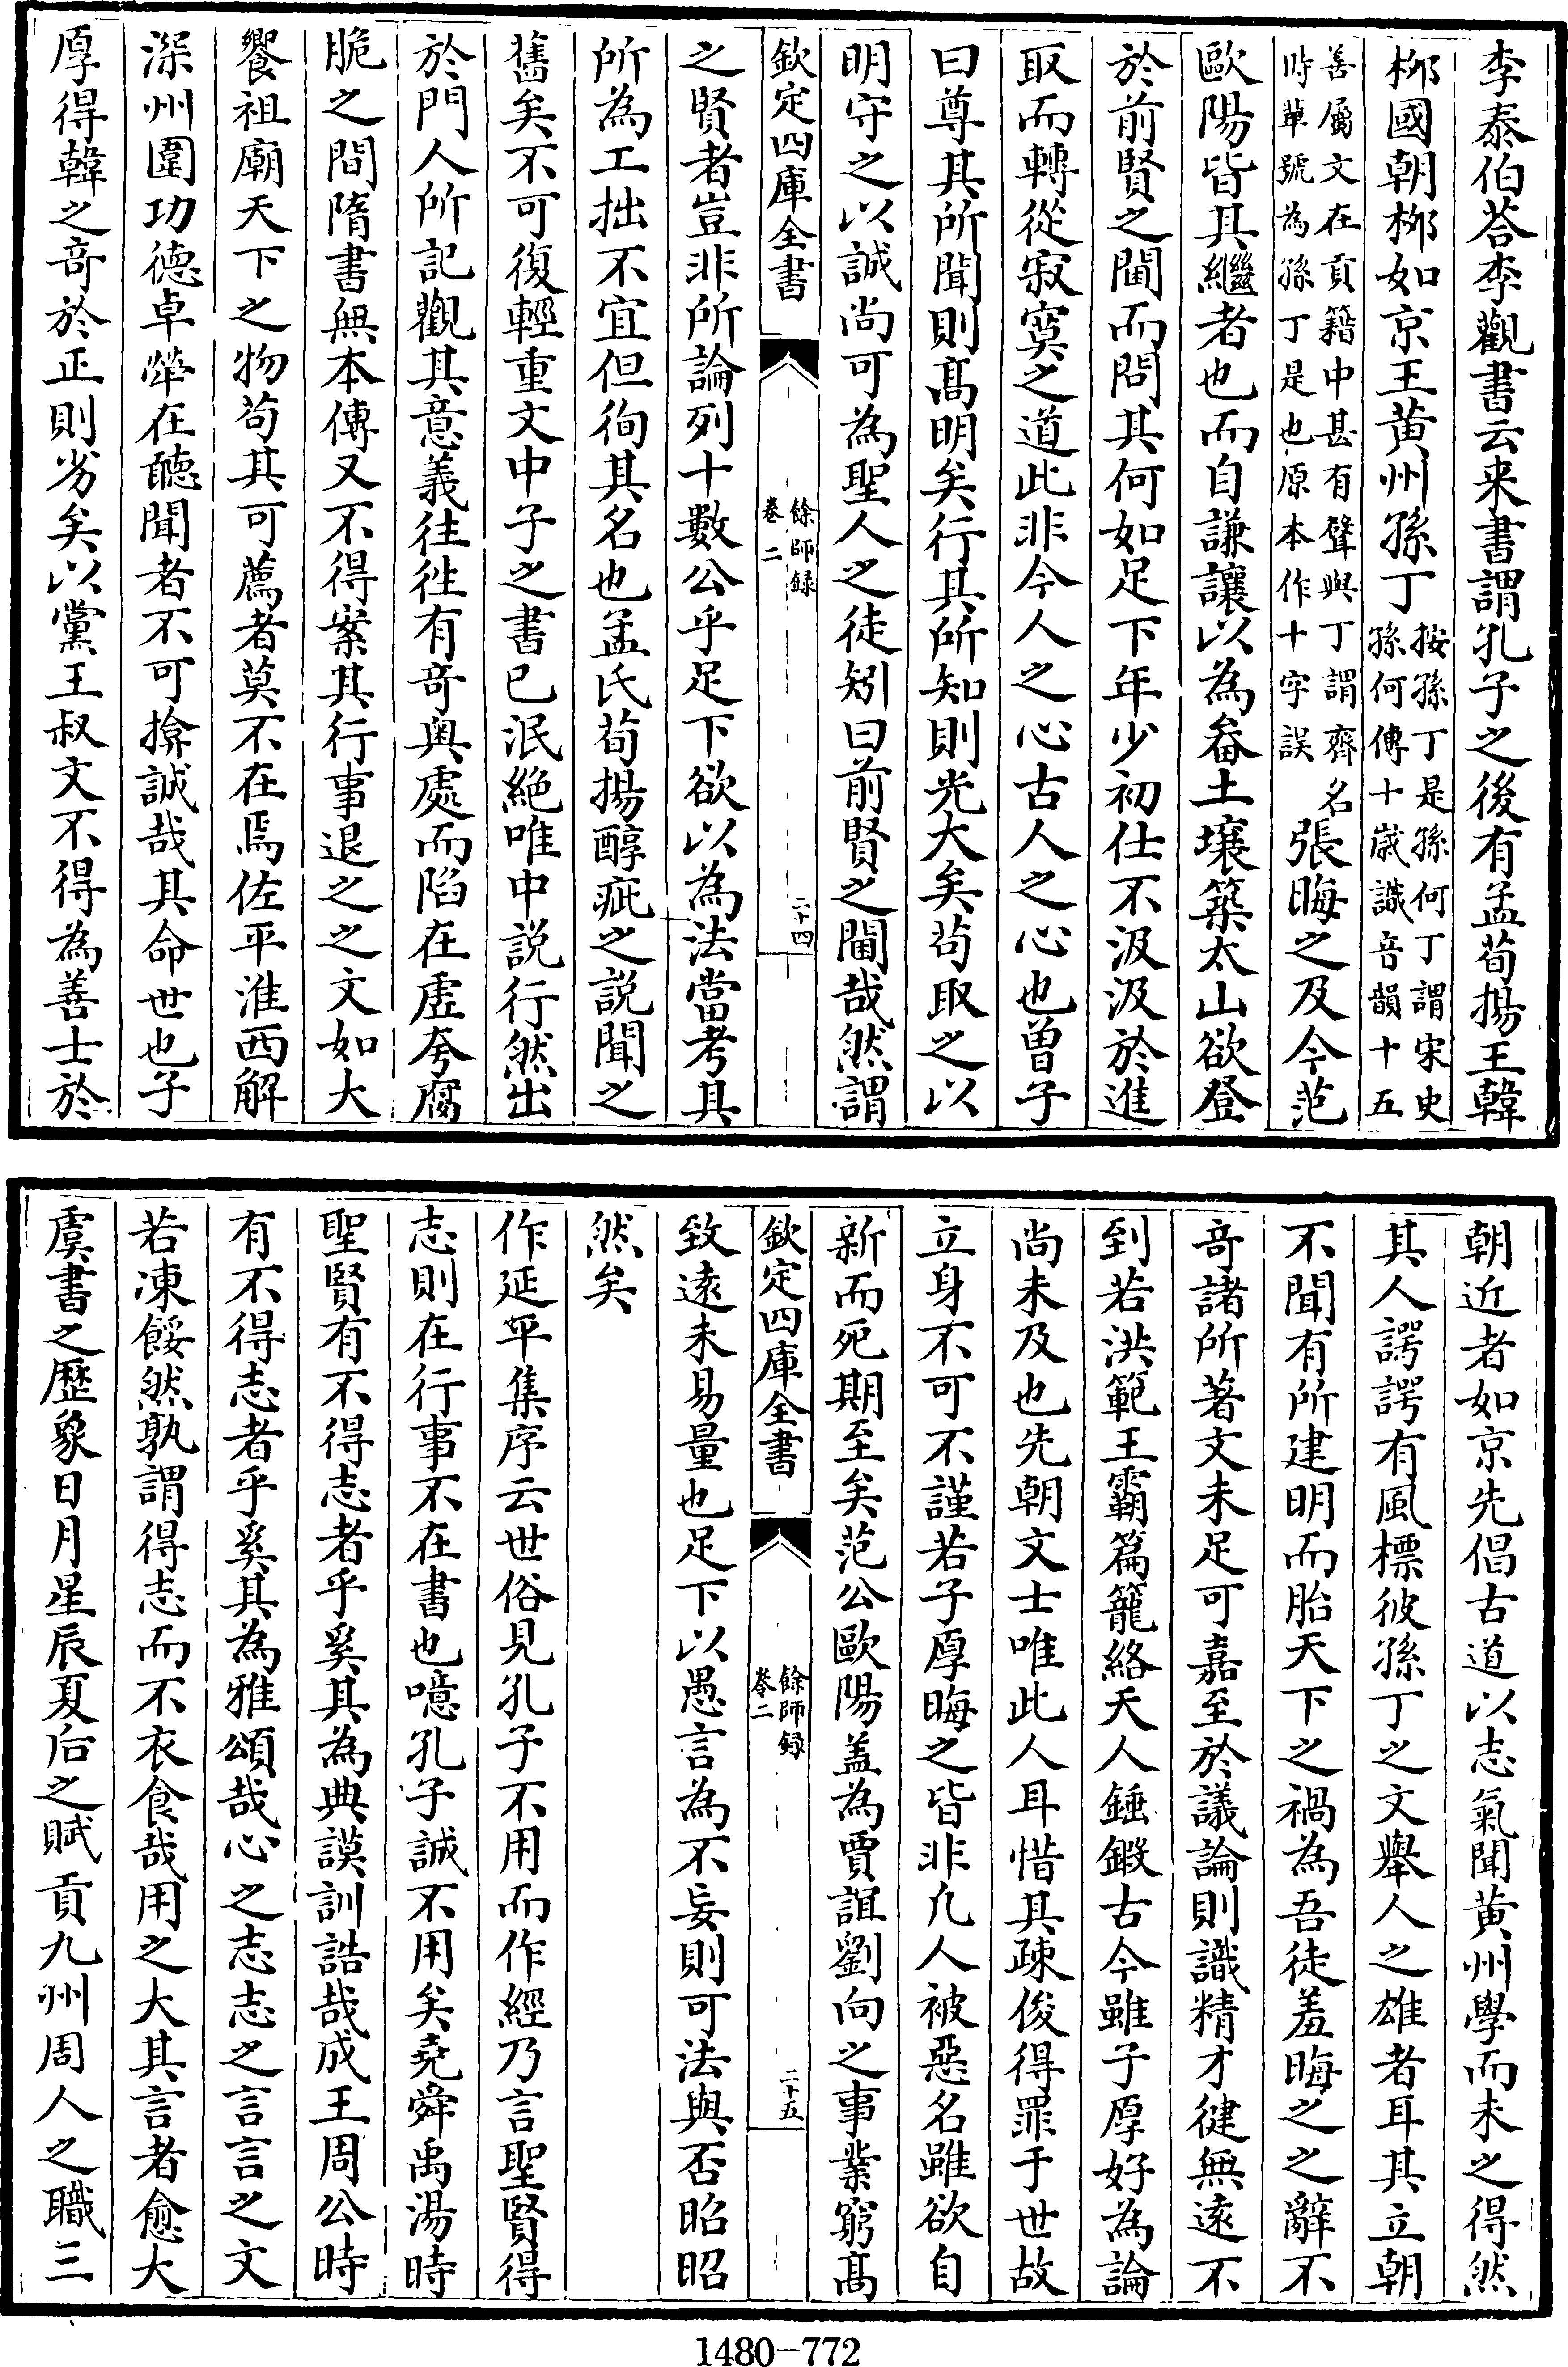 李泰伯荅李觀書云来書謂孔子之後有孟荀揚王韓
栁國朝栁如京王黄州孫丁按孫丁是孫何丁謂宋史孫何傳十歳識音韻十五
善屬文在貢籍中甚有聲與丁謂齊名時軰號為孫丁是也原本作十字誤張晦之及今范
歐陽皆其繼者也而自謙讓以為畚土壤築太山欲登
於前賢之閫而問其何如足下年少初仕不汲汲於進
取而轉從寂寞之道此非今人之心古人之心也曽子
曰尊其所聞則髙明矣行其所知則光大矣茍取之以
明守之以誠尚可為聖人之徒矧曰前賢之閫哉然謂
欽定四庫全書
餘師録
卷二
二十四
之賢者豈非所論列十數公乎足下欲以為法當考其
所為工拙不宜但徇其名也孟氏荀揚醇疵之説聞之
舊矣不可復輕重文中子之書已泯絶唯中説行然出
於門人所記觀其意義往往有竒奥處而陷在虛夸腐
脆之間隋書無本傳又不得案其行事退之之文如大
饗祖廟天下之物茍其可薦者莫不在焉佐平淮西解
深州圍功德卓犖在聽聞者不可揜誠哉其命世也子
厚得韓之竒於正則劣矣以黨王叔文不得為善士於
朝近者如京先倡古道以志氣聞黄州學而未之得然
其人諤諤有風標彼孫丁之文舉人之雄者耳其立朝
不聞有所建明而胎天下之禍為吾徒羞晦之之辭不
竒諸所著文未足可嘉至於議論則識精才健無遠不
到若洪範王霸篇籠絡天人錘鍛古今雖子厚好為論
尚未及也先朝文士唯此人耳惜其疎俊得罪于世故
立身不可不謹若子厚晦之皆非凡人被惡名雖欲自
新而死期至矣范公歐陽盖為賈誼劉向之事業窮髙
欽定四庫全書
餘師録
卷二
二十五
致遠未易量也足下以愚言為不妄則可法與否昭昭
然矣
作延平集序云世俗見孔子不用而作經乃言聖賢得
志則在行事不在書也噫孔子誠不用矣堯舜禹湯時
聖賢有不得志者乎奚其為典謨訓誥哉成王周公時
有不得志者乎奚其為雅頌哉心之志志之言言之文
若凍餒然孰謂得志而不衣食哉用之大其言者愈大
虞書之歷象日月星辰夏后之賦貢九州周人之職三
1480-772